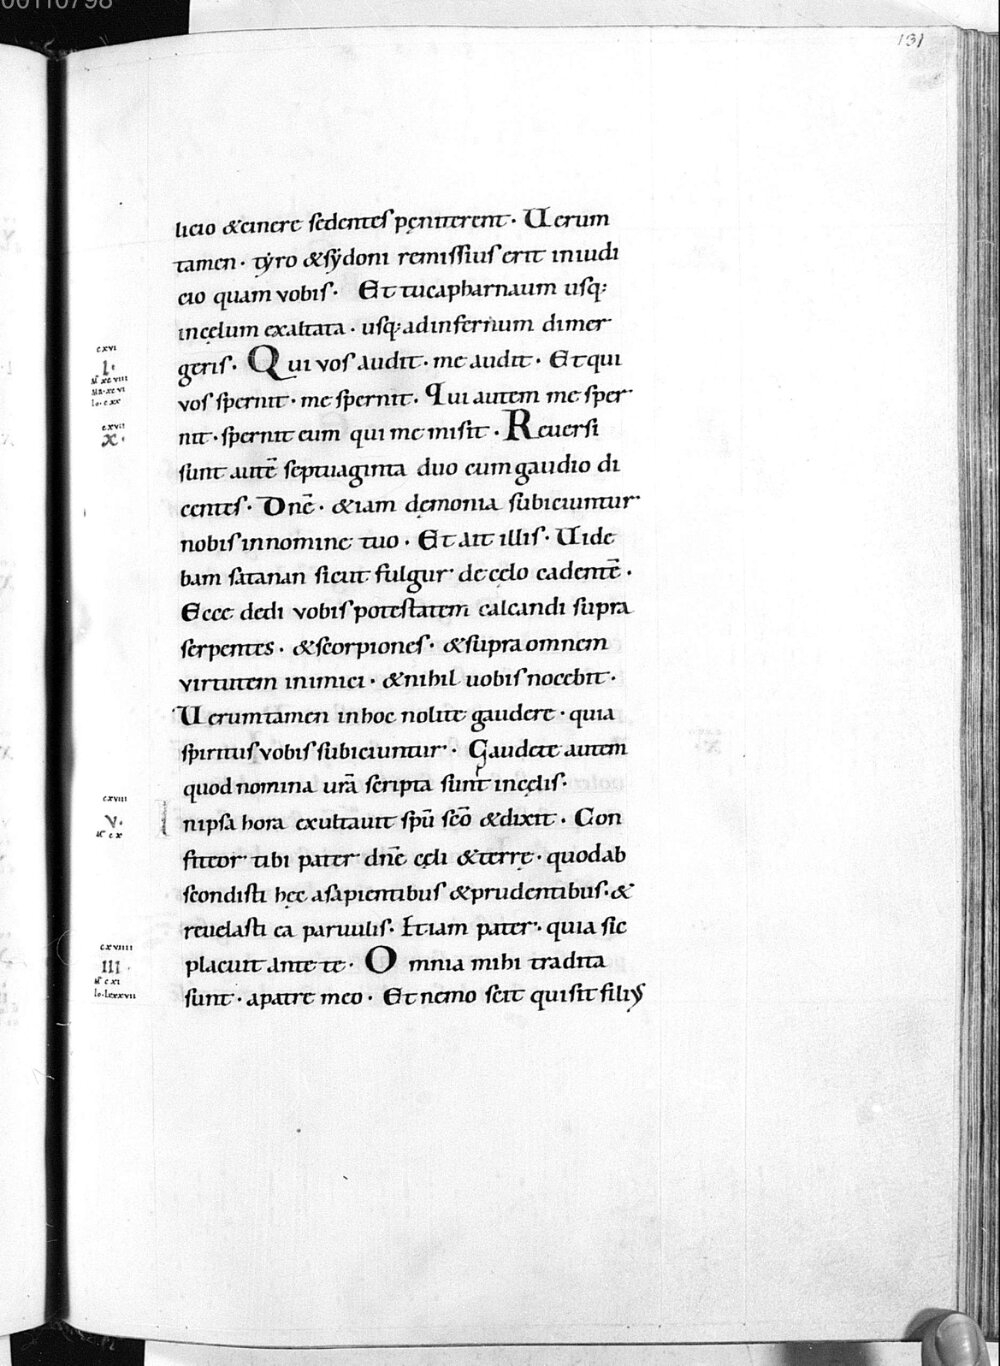 00110798
131
licio & cinere sedentes pęniterent · Uerum
tamen · tyro & sydoni remissius erit in iudi
cio quam vobis · Et tu capharnaum usq:
in cęlum exaltata · usq: ad infernum dimer
cxvi
I ·
geris · Qui vos audit · me audit · Et qui
Mt xcviii
Mr · xcvi
Io · cxx
vos spernit · me spernit · Qui autem me sper
cxvii
x ·
nit · spernit eum qui me misit · Reuersi
sunt autē septuaginta duo cum gaudio di
centes · Dnē · &iam dęmonia subiciuntur
nobis in nomine tuo · Et ait illis · Uide
bam satanan sicut fulgur de cęlo cadentē ·
Ecce dedi vobis potestatem calcandi supra
serpentes · & scorpiones · & supra omnem
virtutem inimici · & nihil uobis nocebit ·
Uerumtamen in hoc nolite gaudere · quia
spiritus vobis subiciuntur · Gaudete autem
quod nomina urā scripta sunt in cęlis ·
cxviii
v ·
Mt cx
In ipsa hora exultauit spū scō & dixit · Con
fiteor tibi pater dnē cęli & terrę · quod ab
scondisti hęc a sapientibus & prudentibus · &
reuelasti ea paruulis · Etiam pater · quia sic
cxviiii
III ·
placuit ante te · Omnia mihi tradita
Mt cxi
Io · lxxxvii
sunt · a patre meo · Et nemo scit qui sit filius